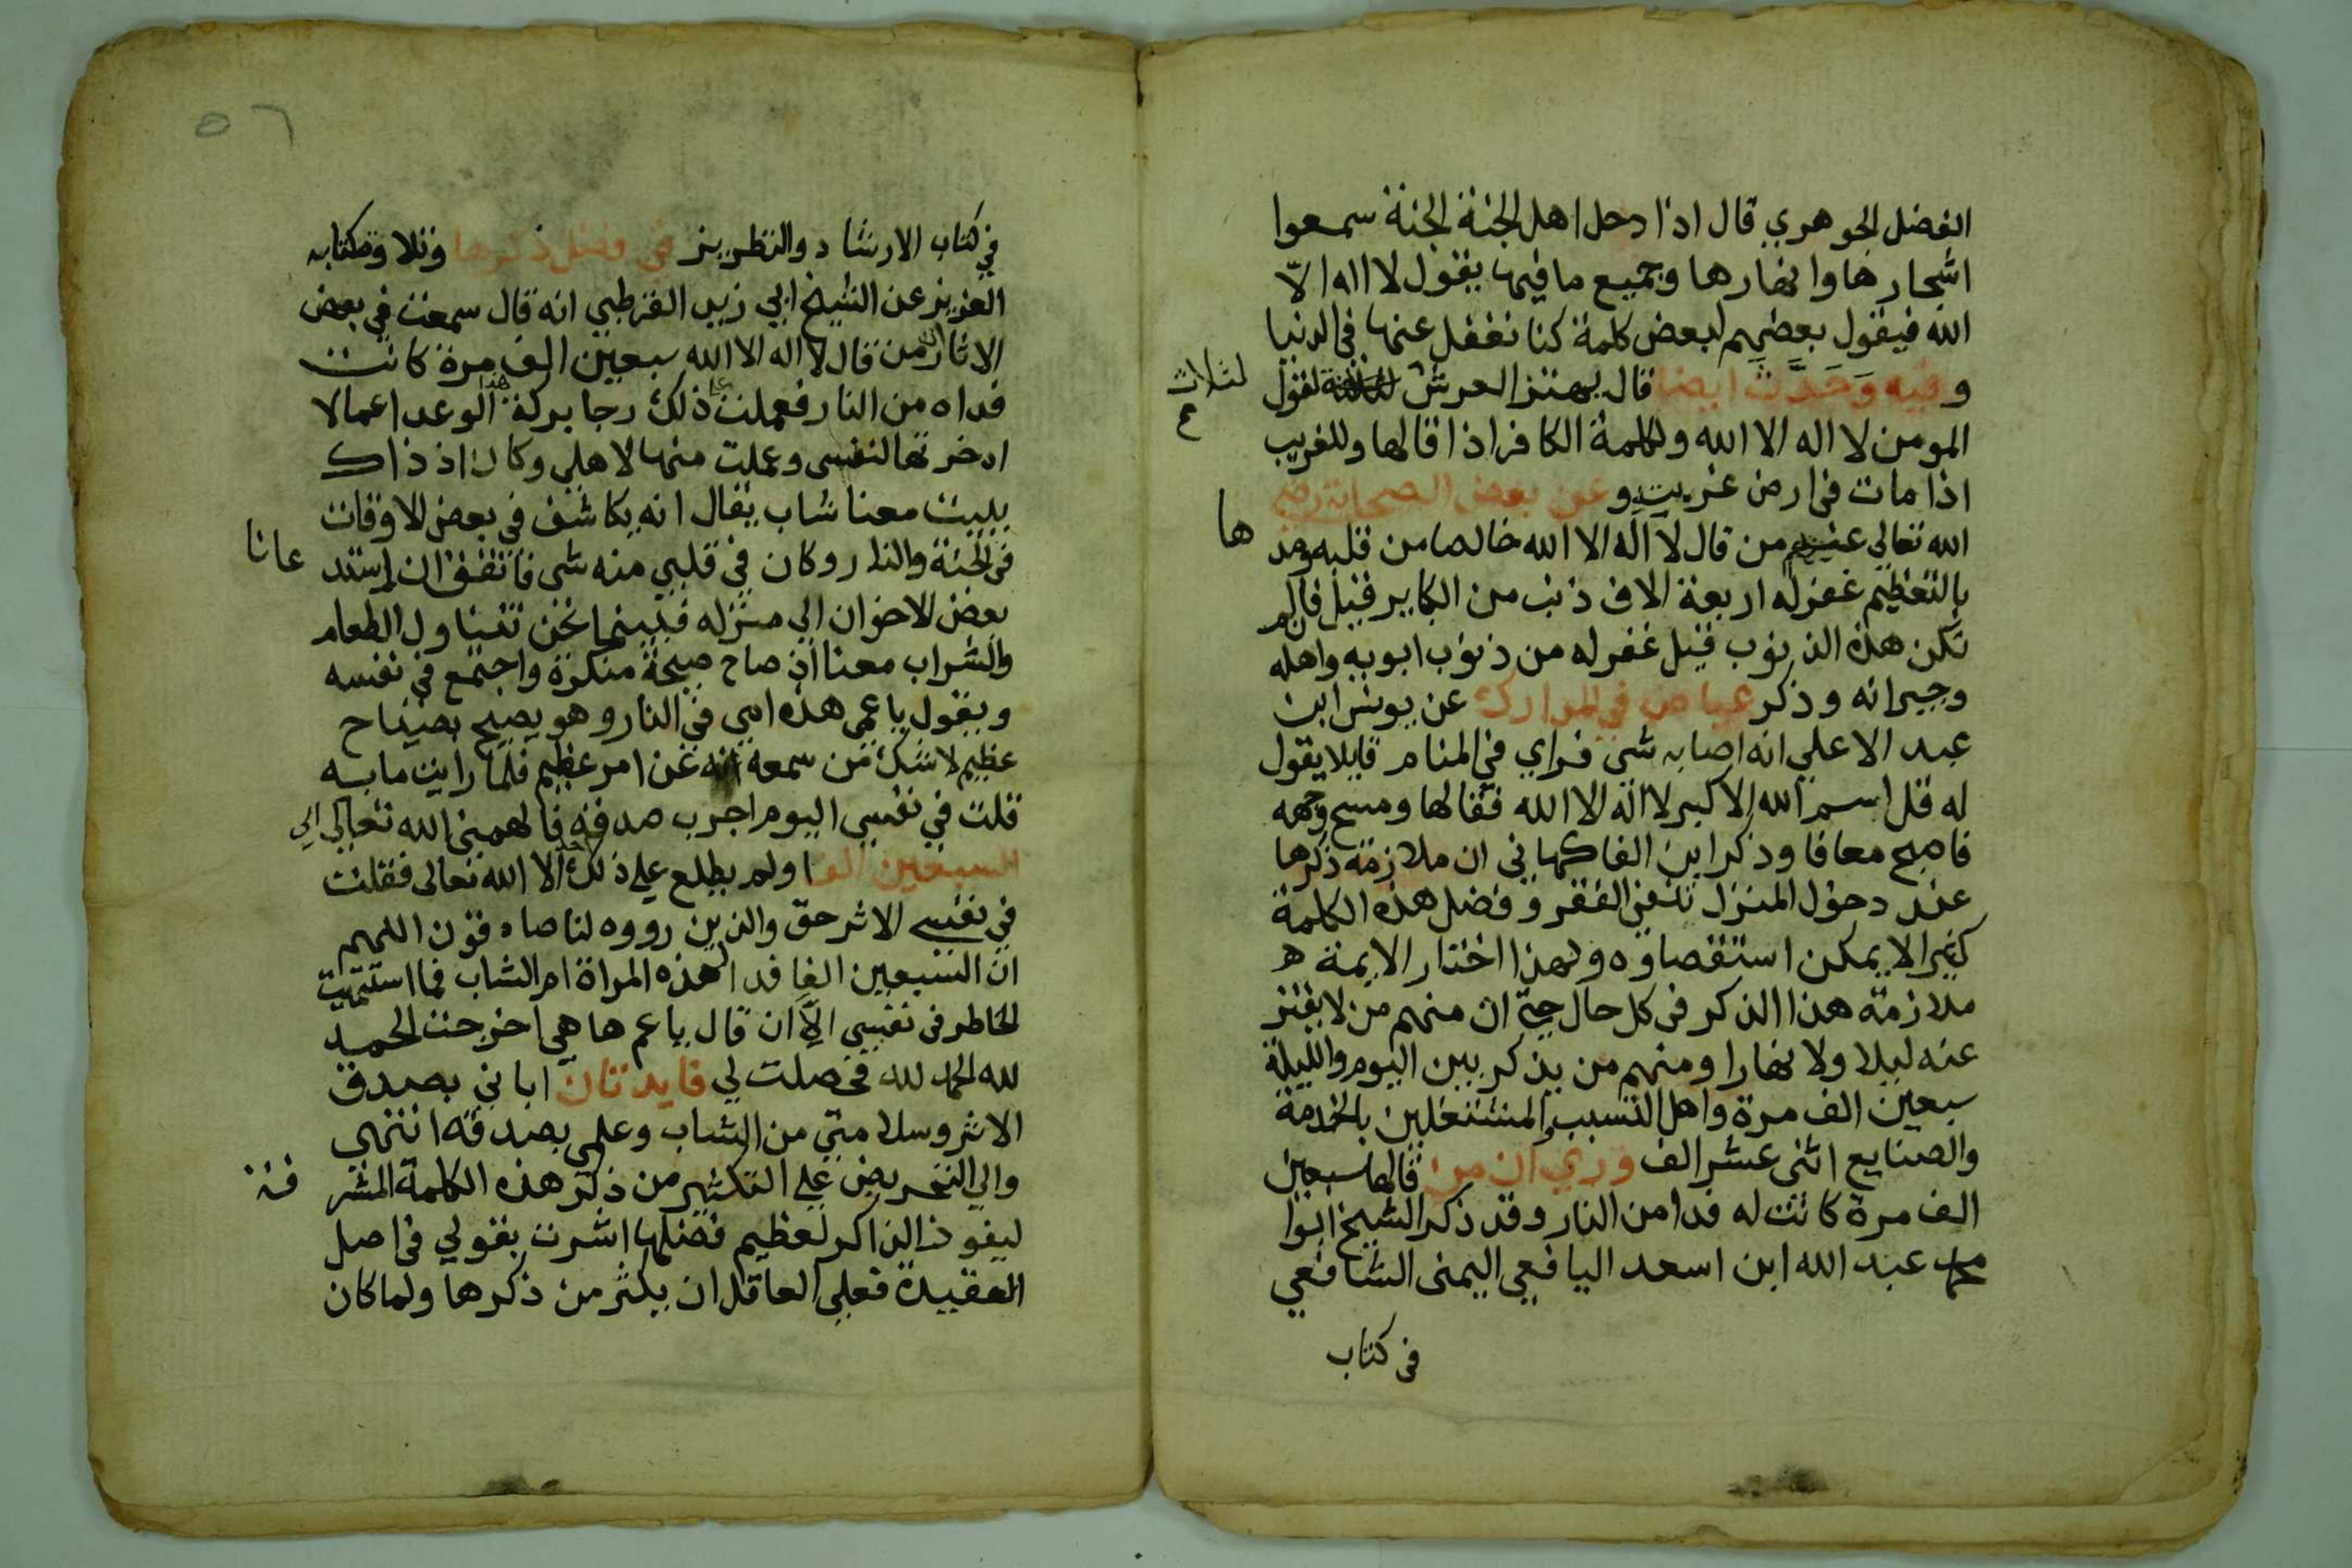 الفضل الجوهري قال اذا دخل اهل الجنة الجنة سمعوا
اشجارها وانهارها وجميع ما فيها يقول لا اله الا
الله فيقول بعضهم لبعض كلمة كنا نغفل عنها في الدنيا
وفيه وَحَدَّثَ ايضا قال يهتز العرش لقول
لثلاث
المومن لا اله الا الله ولكلمة الكافر اذا قالها وللغريب
اذا مات في ارض غريب وعن بعض الصحابة رضي
الله تعالي عنهم من قال لا اله الا الله خالصا من قلبه ومد
ها
بالتعظيم غفر له اربعة الاف ذنب من الكباير قيل فان لم
تكن هذه الذنوب قيل غفر له من ذنوب ابويه واهله
وجيرانه وذكر عياض في المدارك عن يونس ابن
عبد الاعلي انه اصابه شي فراي في المنام قايلا يقول
له قل اسم الله الاكبر لا اله الا الله فقالها ومسح وجهه
فاصبح معافا وذكر ابن الفاكهاني ان ملازمة ذكرها
عند دخول المنزل تنفي الفقر وفضل هذه الكلمة
كثير الا يمكن استقصاوه ولهذا اختار الايمة ه
ملازمة هذا الذكر في كل حال حتي ان منهم من لا يفتر
عنه ليلا ولا نهارا ومنهم من يذكر بين اليوم والليلة
سبعين الف مرة واهل التسبب والمشتغلين بالخدمة
والصنايع اثني عشر الف وروي ان من قالها سبعين
الف مرة كانت له فدا من النار وقد ذكر الشيخ ابوا
محمد عبد الله ابن اسعد اليافعي اليمني الشافعي
في كتاب
٥٦
في كتاب الارشاد والتطريز في فضل ذكرها وتلاوة كتابه
العزيز عن الشيخ ابي زيد القرطبي انه قال سمعت في بعض
الاثار ان من قال لا اله الا الله سبعين الف مرة كانت
فداه من النار فعملت علي ذلك رجا بركة هذا الوعد اعمالا
ادخرتها لنفسي وعملت منها لاهلي وكان اذ ذاك
يبيت معنا شاب يقال انه يكاشف في بعض الاوقات
في الجنة والنار وكان في قلبي منه شي فاتفق ان استد
عانا
بعض الاخوان الي منزله فبينما نحن نتناول الطعام
والشراب معنا اذ صاح صيحة منكرة واجتمع في نفسه
ويقول يا عمي هذه امي في النار وهو يصيح بصياح
عظيم لا شك من سمعه انه عن امر عظيم فلما رايت ما به
قلت في نفسي اليوم اجرب صدقه فالهمني الله تعالي الي
السبعين الفا ولم يطلع علي ذلك احد الا الله تعالي فقلت
في نفسي الاثر حق والذين رووه لنا صادقون اللهم
ان السبعين الفا فدا لهذه المراة ام الشاب فما استتمت
الخاطر في نفسي الا ان قال يا عم ها هي اخرجت الحمد
لله الحمد لله فحصلت لي فايدتان ايماني بصدق
الاثر وسلامتي من الشاب وعلمي بصدقه انتهي
والي التحريض علي التكثير من ذكر هذه الكلمة المشر
فة
ليفوز الذاكر لعظيم فضلها اشرت بقولي في اصل
العقيدة فعلي العاقل ان يكثر من ذكرها ولما كان